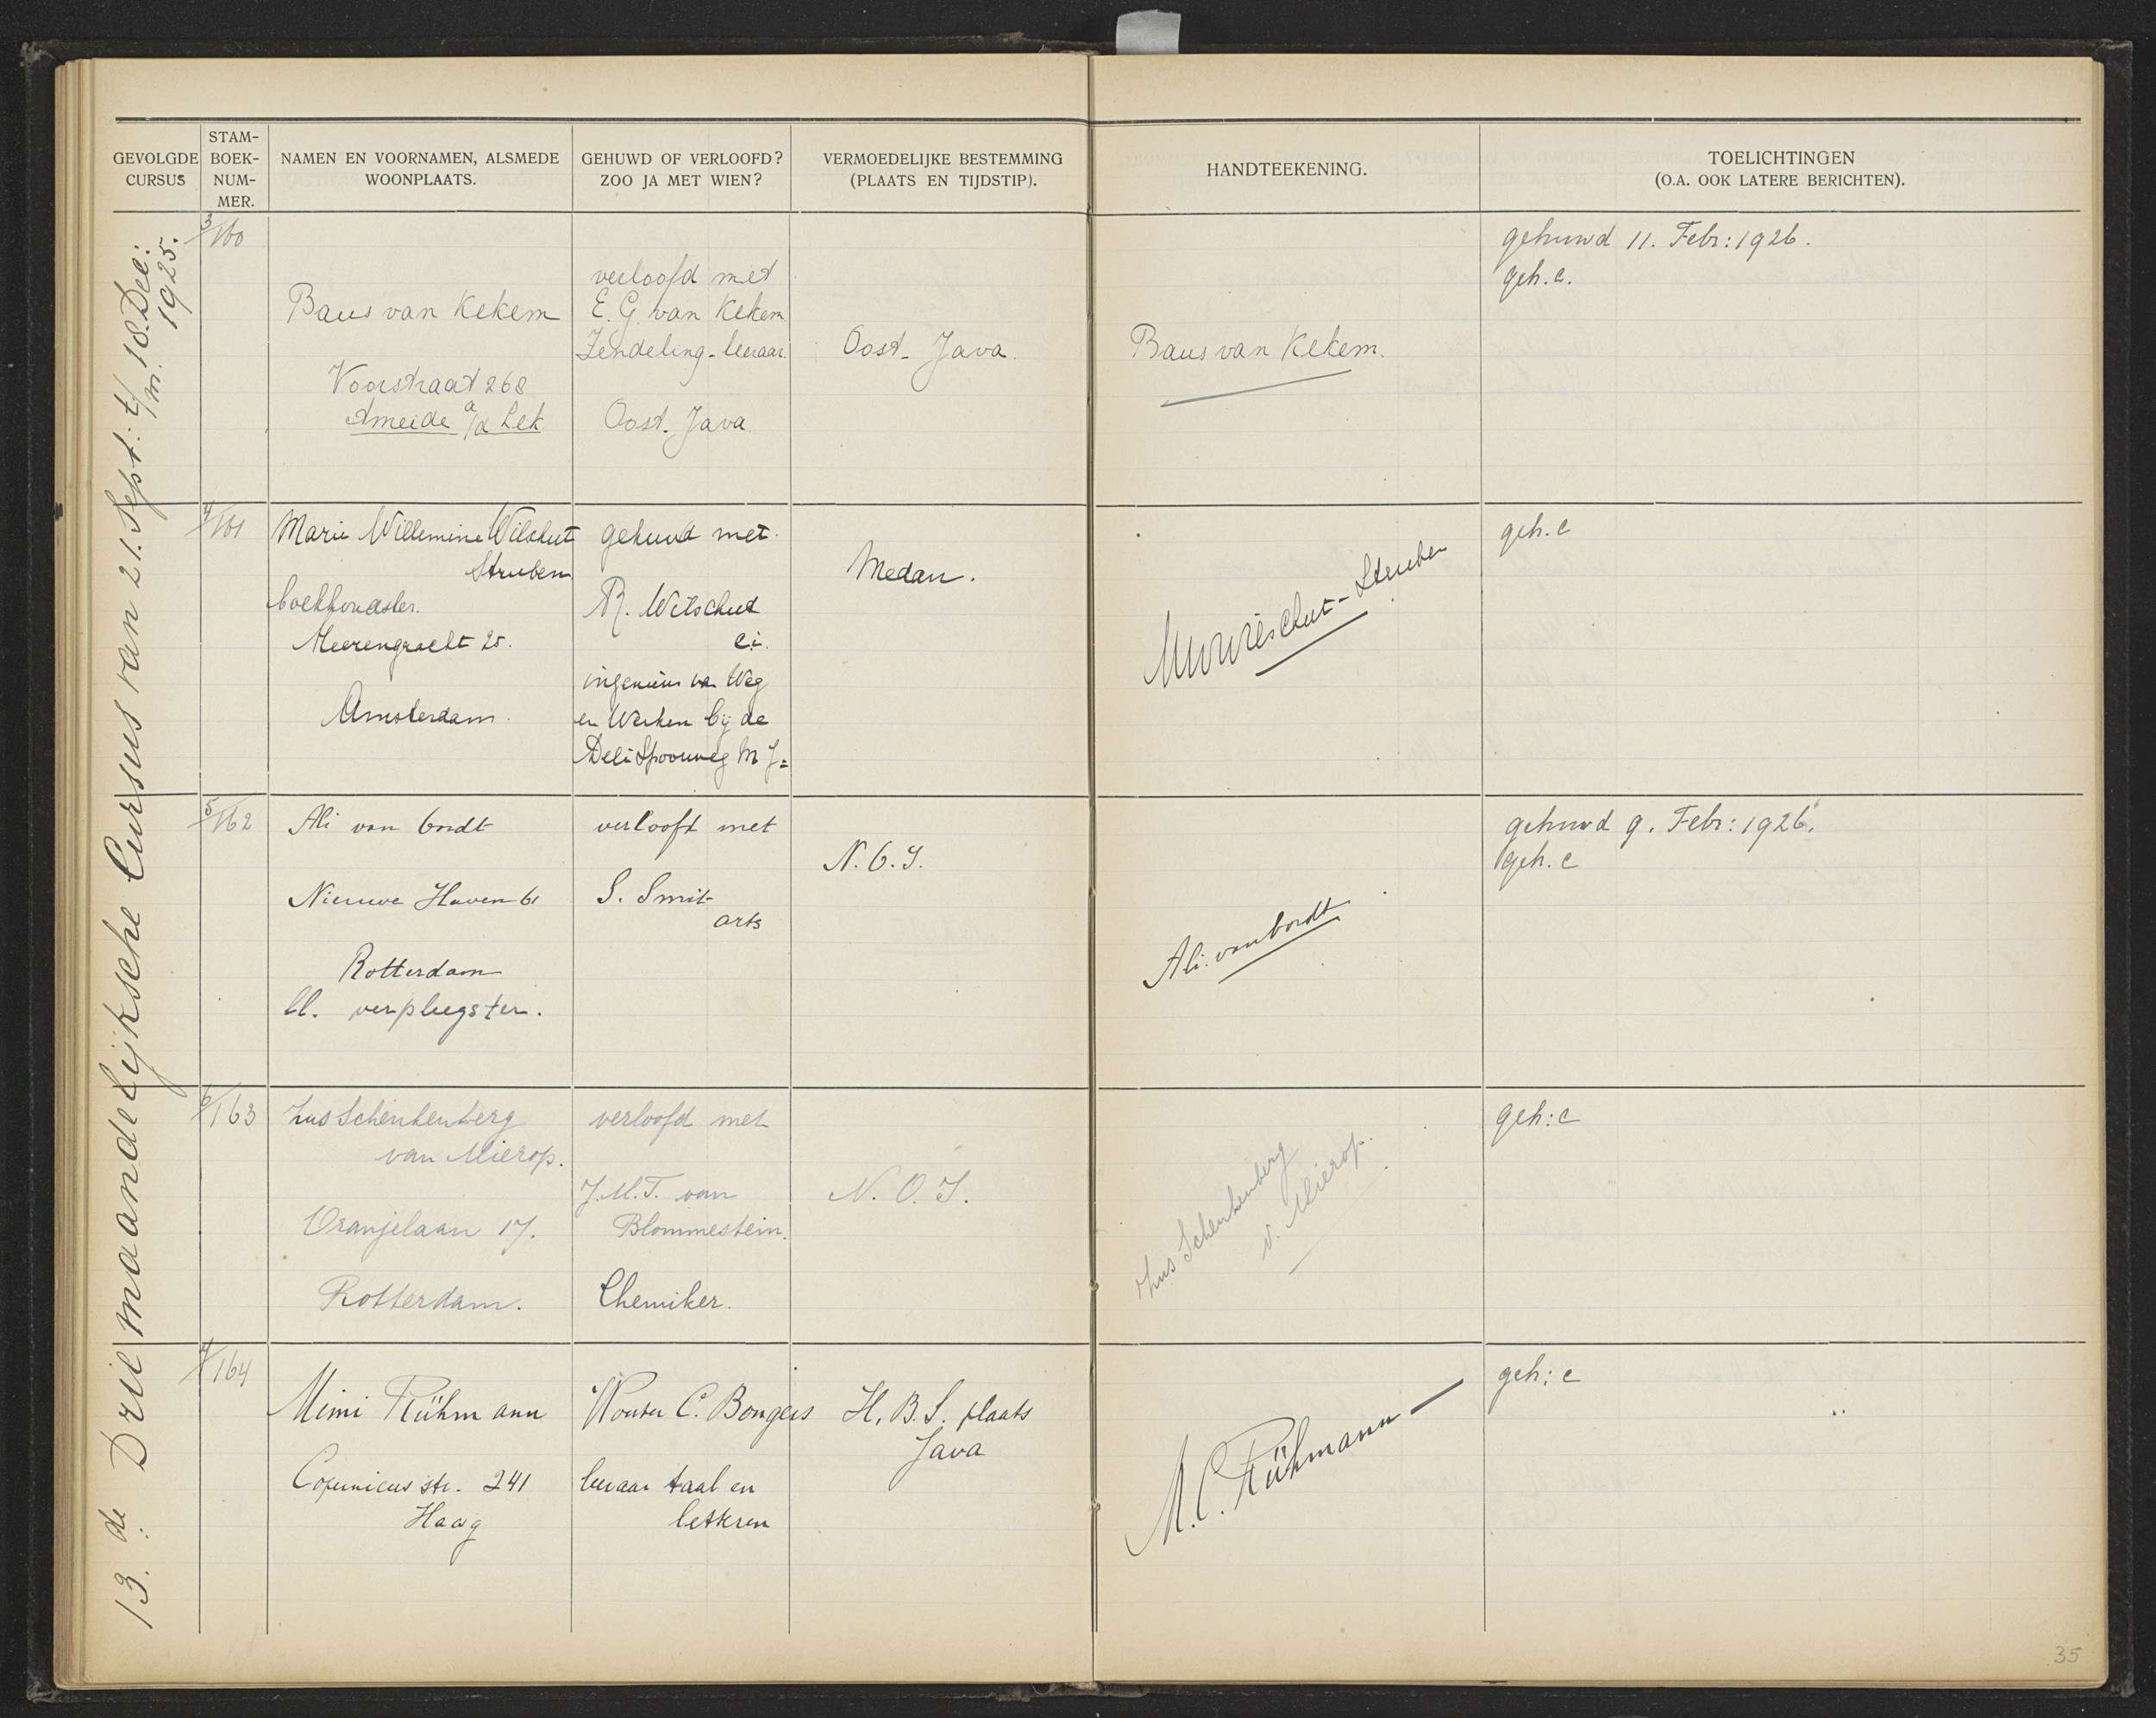 GEVOLGDE CURSUS
STAM-BOEK-NUM-MER.
NAMEN EN VOORNAMEN, ALSMEDE WOONPLAATS.
GEHUWD OF VERLOOFD? ZOO JA MET WIEN?
VERMOEDELIJKE BESTEMMING (PLAATS EN TIJDSTIP).
HANDTEEKENING.
TOELICHTINGEN (O.A. OOK LATERE BERICHTEN).
13.de Driemaandelijksche Cursus van 21. Sept: t/m. 18. Dec: 1925.
3/160
Baus van Kekem
Voorstraat 268
Ameide a/d Lek
verloofd met
E. G. van Kekem
Zendeling-leeraar.
Oost-Java
Oost-Java.
Baus van Kekem.
gehuwd 11. Febr: 1926.
geh. c.
4/161
Marie Willemine Wilschut
Struben
boekhoudster.
Heerengracht 25.
Amsterdam.
gehuwd met
R. Wilschut
c.i.
ingenieur van Weg
en Werken bij de
Deli Spoorweg Mij =
Medan.
MWWilschut-Struben
geh. c
5/162
Ali van Oordt
Nieuwe Haven 61
Rotterdam
ll. verpleegster.
verlooft met
S. Smit
arts
N. O. I.
Ali van Oordt
gehuwd 9. Febr: 1926.
geh. c
6/163
Zus Schenkenberg
van Mierop.
Oranjelaan 17.
Rotterdam.
verloofd met
J.M.T. van
Blommestein.
Chemiker.
N. O. I.
Zus Schenkenberg
v. Mierop.
geh: c
7/164
Mimi Rühmann
Copernicus str. 241
Haag
Wouter C. Bongers
leeraar taal en
letteren
H. B. S. plaats
Java
M. C. Rühmann
geh: c
35